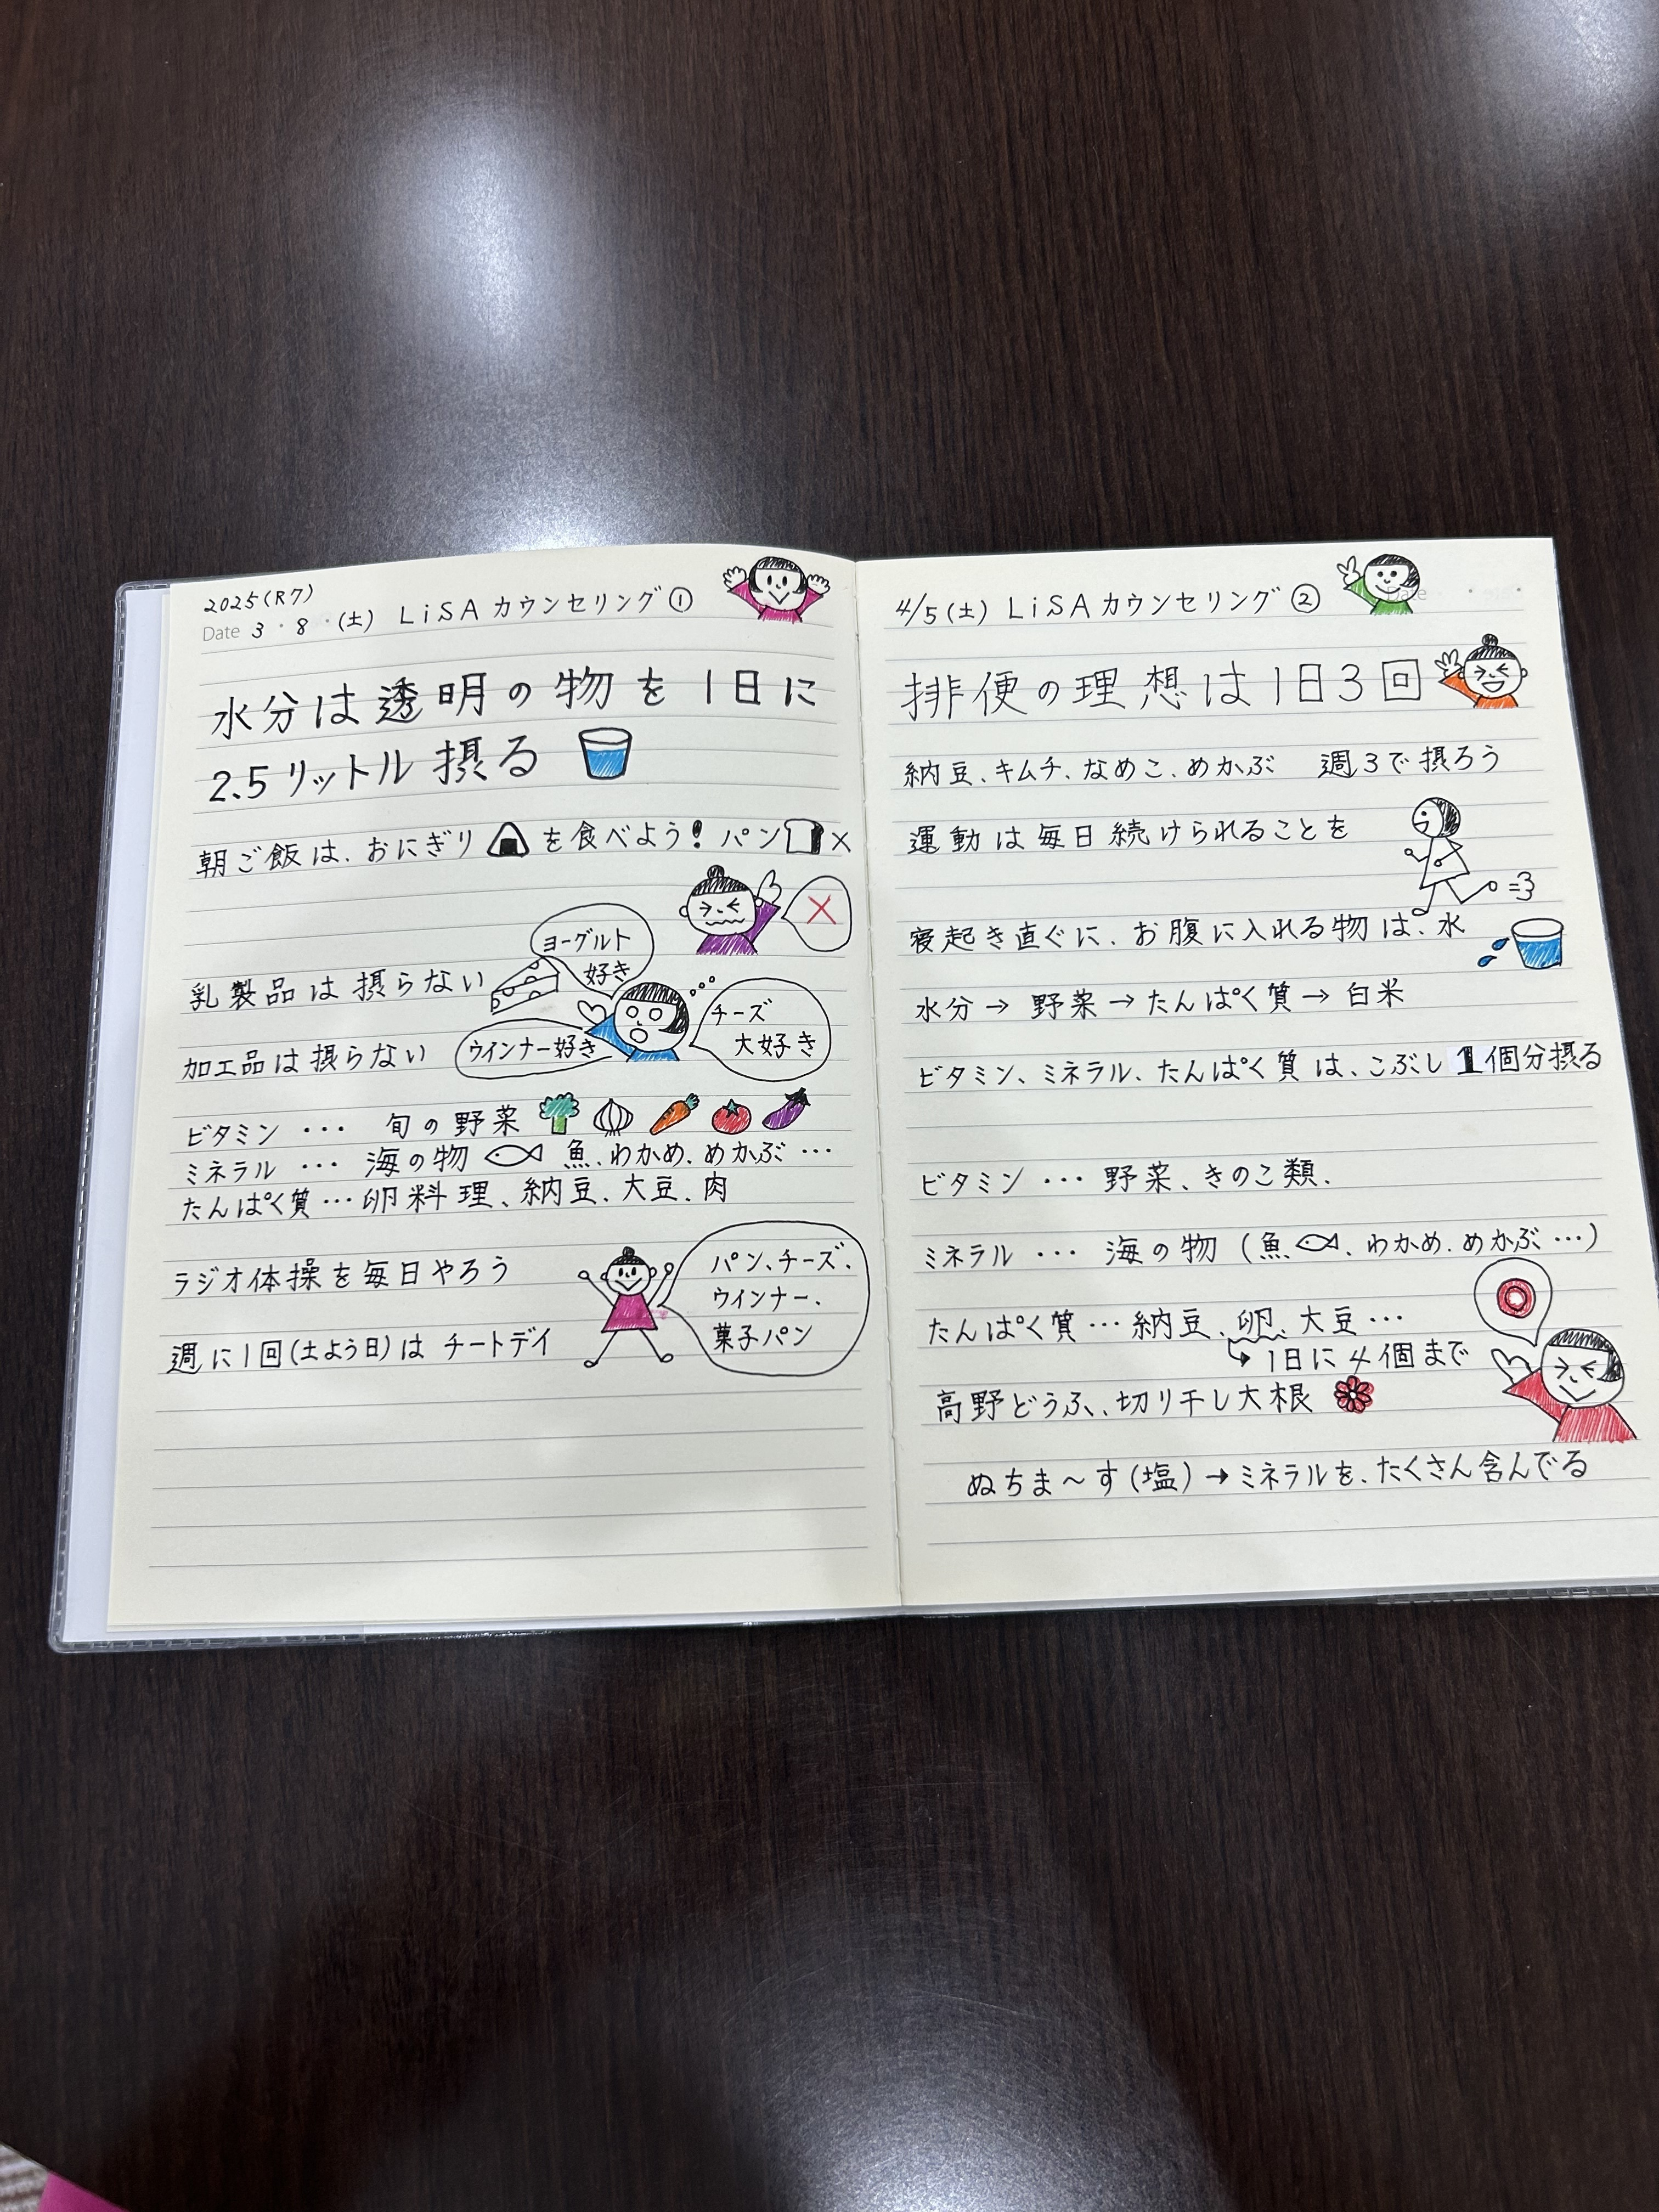 2025(R7)
Date 3・8・(土) LiSAカウンセリング①
水分は透明の物を1日に
2.5リットル摂る
朝ご飯は、おにぎりを食べよう！パン×
×
ヨーグルト
好き
乳製品は摂らない
チーズ
大好き
ウインナー好き
加工品は摂らない
ビタミン … 旬の野菜
ミネラル … 海の物 魚、わかめ、めかぶ…
たんぱく質…卵料理、納豆、大豆、肉
ラジオ体操を毎日やろう
パン、チーズ、
ウインナー、
菓子パン
週に1回(土よう日)は チートデイ
4/5(土) LiSAカウンセリング②
Date
排便の理想は1日3回
納豆、キムチ、なめこ、めかぶ 週3で摂ろう
運動は毎日続けられることを
寝起き直ぐに、お腹に入れる物は、水
水分→野菜→たんぱく質→白米
ビタミン、ミネラル、たんぱく質は、こぶし1個分摂る
ビタミン … 野菜、きのこ類、
ミネラル … 海の物（魚、わかめ、めかぶ…）
たんぱく質…納豆、卵、大豆…
↳1日に4個まで
高野どうふ、切り干し大根
ぬちま～す(塩)→ミネラルを、たくさん含んでる